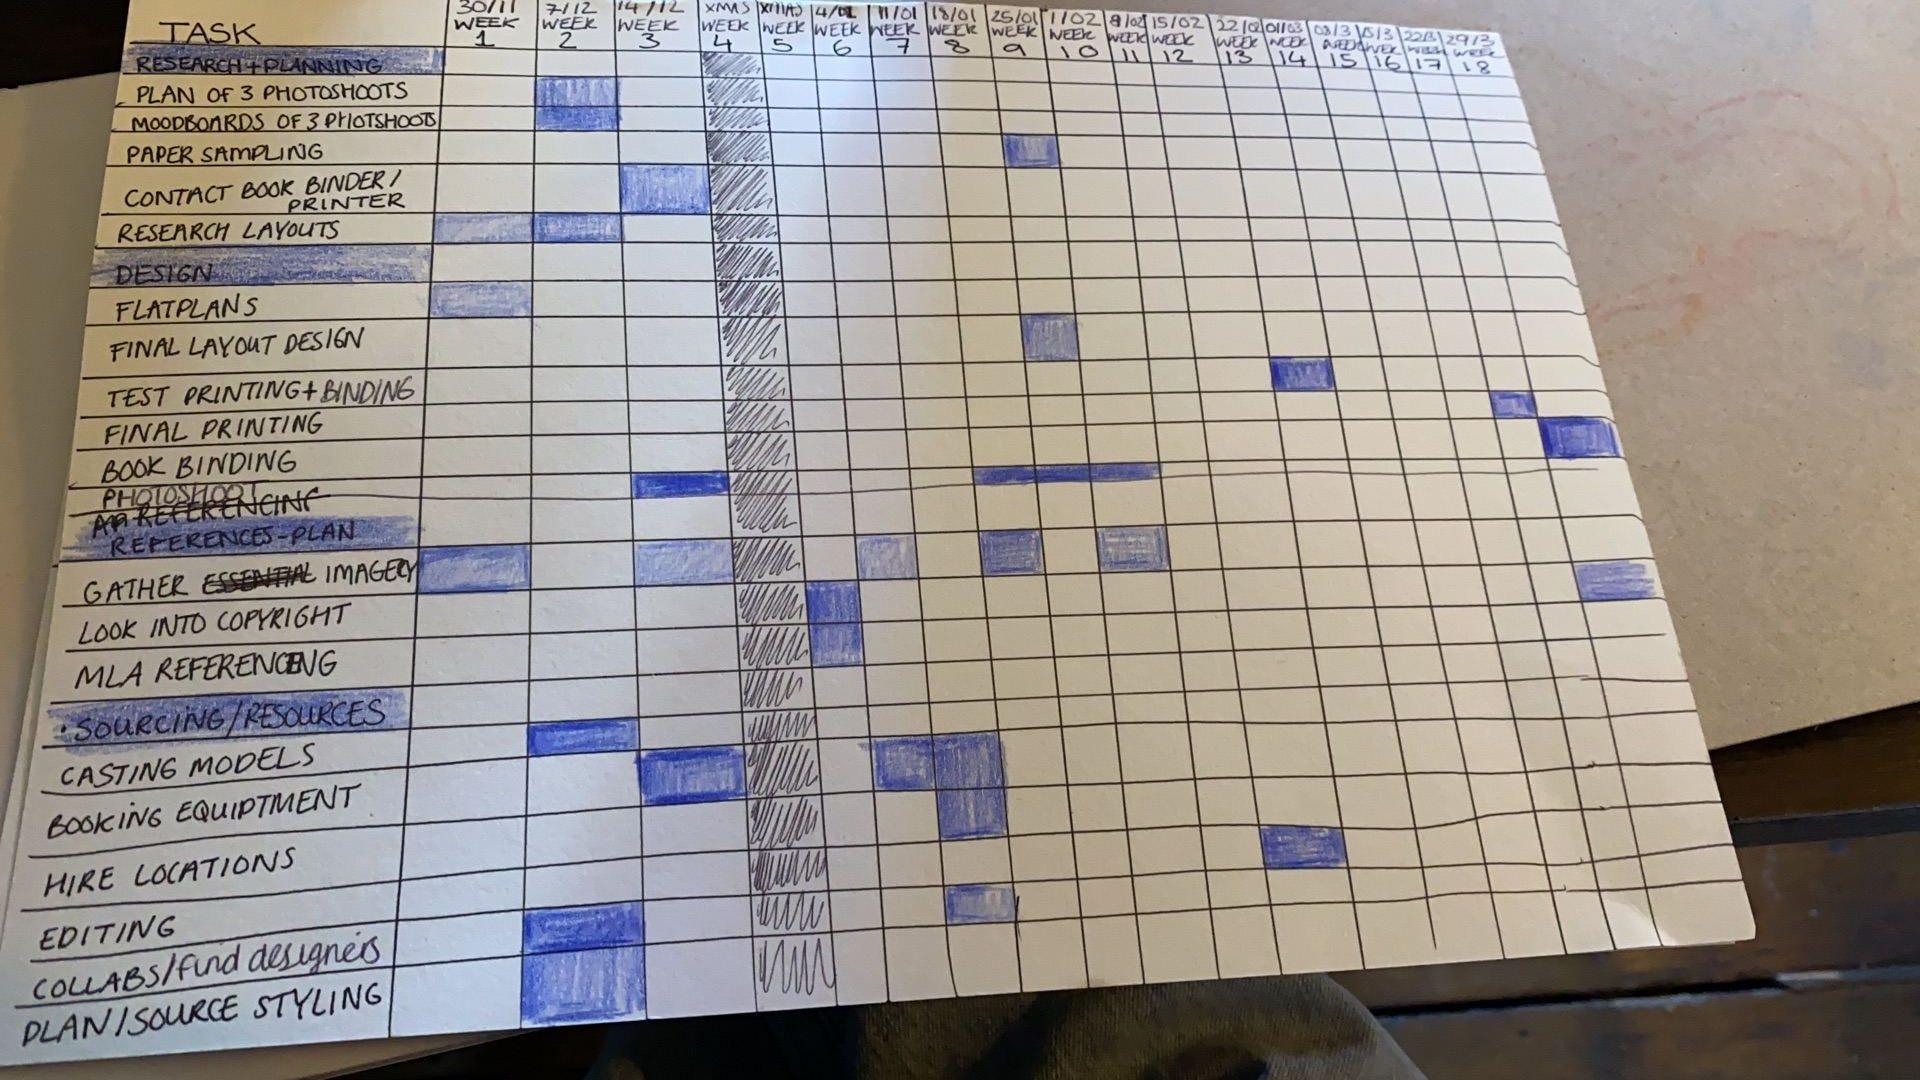 TASK
30/11 WEEK 1
7/12 WEEK 2
14/12 WEEK 3
XMAS WEEK 4
XMAS WEEK 5
4/01 WEEK 6
11/01 WEEK 7
18/01 WEEK 8
25/01 WEEK 9
1/02 WEEK 10
8/02 WEEK 11
15/02 WEEK 12
22/02 WEEK 13
01/03 WEEK 14
08/3 WEEK 15
15/3 WEEK 16
22/3 WEEK 17
29/3 WEEK 18
RESEARCH + PLANNING
PLAN OF 3 PHOTOSHOOTS
MOODBOARDS OF 3 PHOTSHOOTS
PAPER SAMPLING
CONTACT BOOK BINDER/
PRINTER
RESEARCH LAYOUTS
DESIGN
FLATPLANS
FINAL LAYOUT DESIGN
TEST PRINTING + BINDING
FINAL PRINTING
BOOK BINDING
PHOTOSHOOT
REFERENCING
REFERENCES-PLAN
GATHER ESSENTIAL IMAGERY
LOOK INTO COPYRIGHT
MLA REFERENCING
• SOURCING/RESOURCES
CASTING MODELS
BOOKING EQUIPTMENT
HIRE LOCATIONS
EDITING
COLLABS/find designers
PLAN/SOURCE STYLING